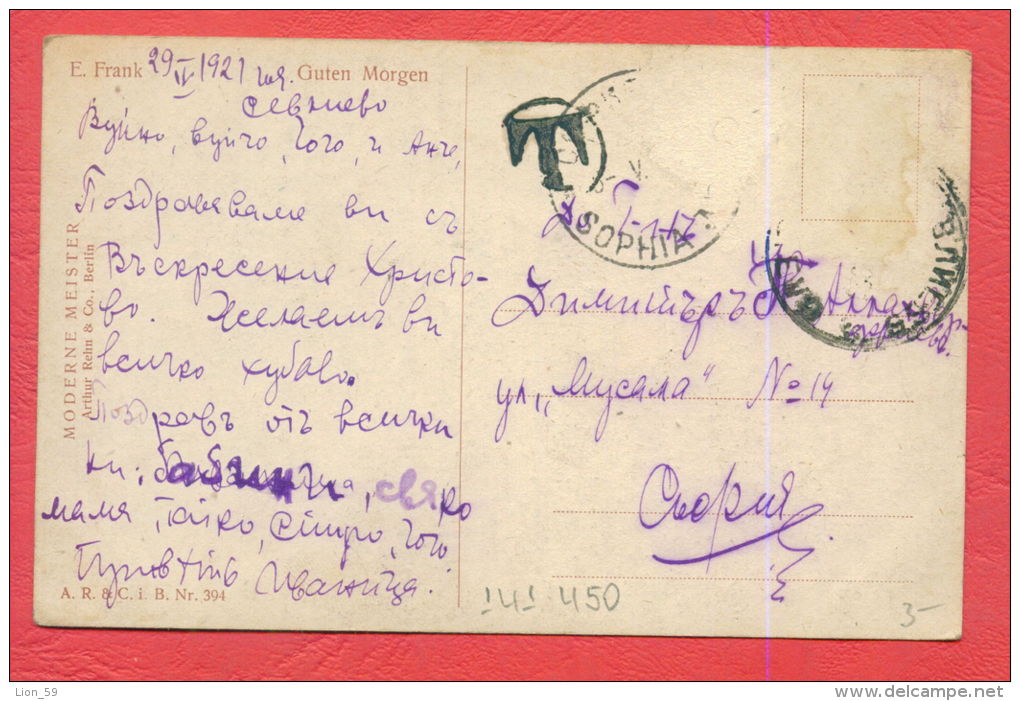 E. Frank Guten Morgen
29 IV 1921 год.
Севлиево
Вуйно, вуйчо, Гого, и Анче,
Поздравяваме ви съ
Възкресение Христо-
во. Желаемъ ви
всичко хубаво.
Поздравъ отъ всички
ни: баба, свако
мама, Татко, Гого
Иваница.
MODERNE MEISTER
Arthur Rehn & Co., Berlin
A. R. & C. i. B. Nr. 394
T
SOPHIA
До
Димитъръ
ул. „Мусала" № 14
София
141 450
3-
Lion_59
delcampe.net